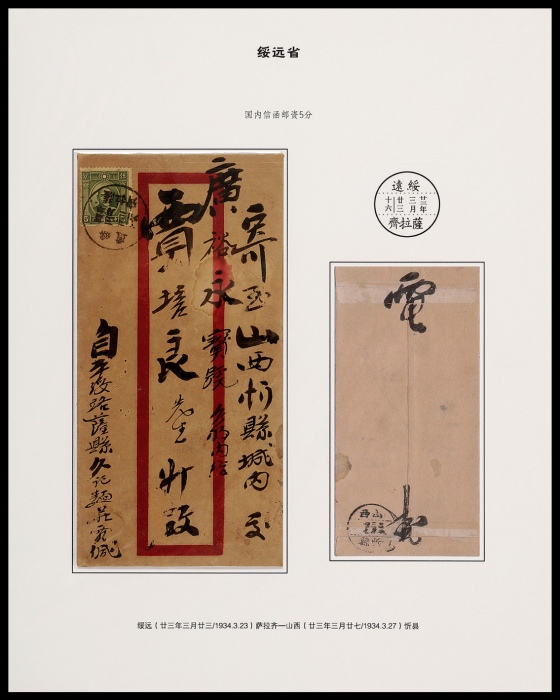 绥远省
国内信函邮资5分
寄至山西忻縣城内交
廣裕永寶號
賈
良先生
自平綏路薩縣久記麵莊
綏遠
廿三年
三月
廿三
十六
薩拉齊
山西
绥远（廿三年三月廿三/1934.3.23）萨拉齐—山西（廿三年三月廿七/1934.3.27）忻县